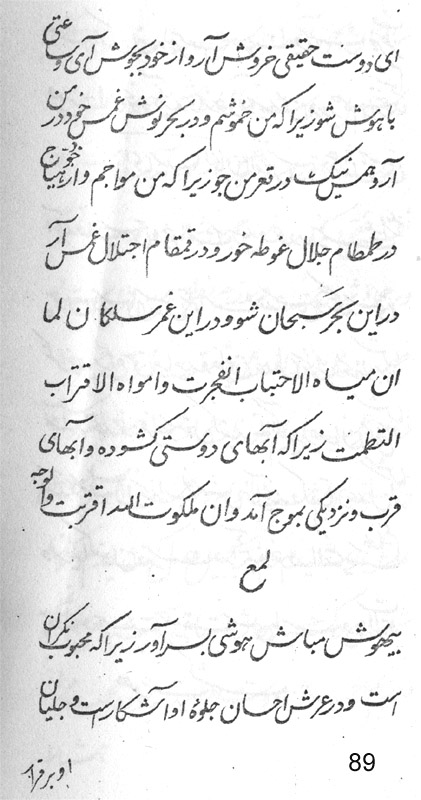 ای دوست حقیقی خروش آر و از خود بجوش آی و ساعتی
باهوش شو زیرا که من خموشم و در بحر نوش غمس خود در من
آر و همس نیک در قعر من جو زیرا که من مواجم و از هیاج
در طمطام جلال غوطه خور و در قمقام اجتلال غمس آر
در این بحر سبحان شو و در این غمر سلکان لما
ان میاه الاحتباب انفجرت و امواه الاقتراب
التطمت زیرا که آبهای دوستی کشوده و آبهای
قرب و نزدیکی بموج آمد و ان ملکوت الله اقتربت و لوجه
لمع
بیهوش مباش هوشی بسر آور زیرا که محبوب نکران
است و در عرش احسان جلوهٔ او آشکار است و جلیان
او برقرار
89